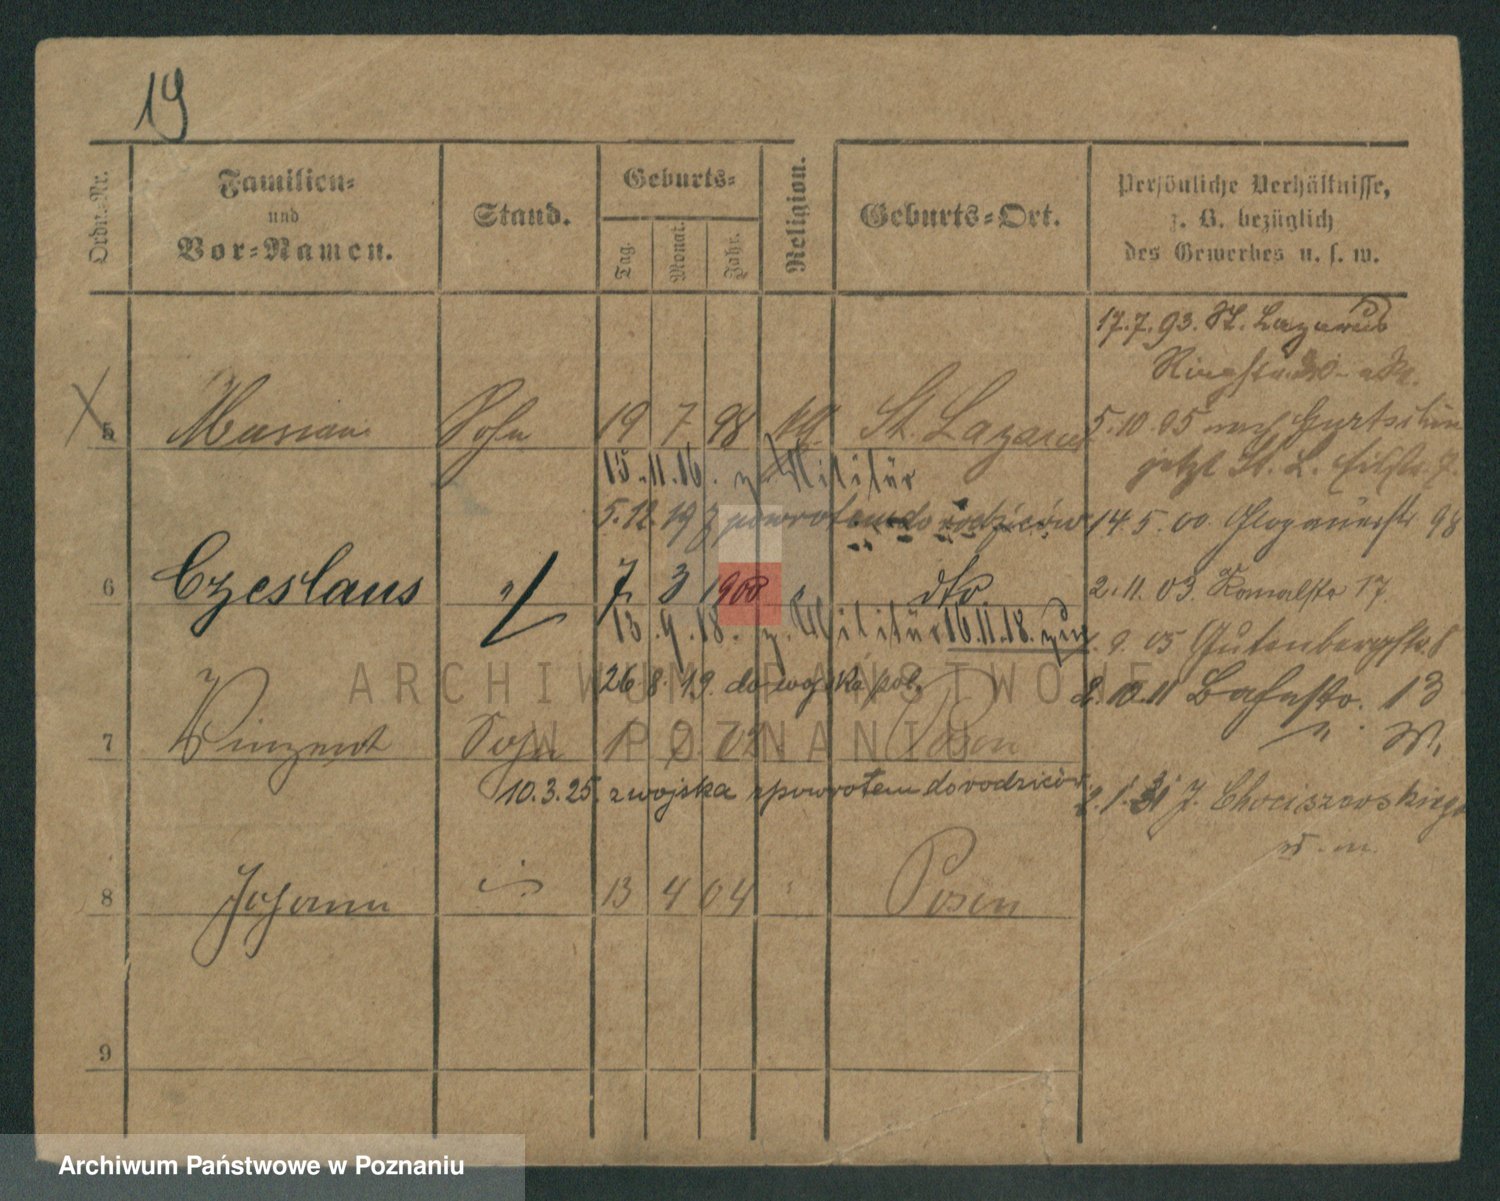 19
Ordn.-Nr.
Familien-
und
Vor-Namen.
Stand.
Geburts-
Tag.
Monat.
Jahr.
Religion.
Geburts-Ort.
Persönliche Verhältnisse,
z. B. bezüglich
des Gewerbes u. s. w.
17.7.93. St. Lazarus
5 Marian Sohn 19 7 98 kath. St. Lazarus
5.10.95 nach
jetzt St. L.
15.11.16. z. Militär
5.12.19 z powrotem do rodziców
14.5.00. Glogauerstr 98
6 Czeslaus " 7 3 1900 " dto.
2.11.03. 17.
13.9.18. z. Militär 16.11.18. zur
9.05 Gutenbergstr. 8
26 8 19. do wojska pol.
2.10.11 13
7 Vinzent Sohn 1 02 Posen
" W.
10.3.25. z wojska zpowrotem do rodziców.
2.1.31 J. Chociszewskiego
8 Johann " 13 4 04 " Posen
9
ARCHIWUM PAŃSTWOWE
W POZNANIU
Archiwum Państwowe w Poznaniu